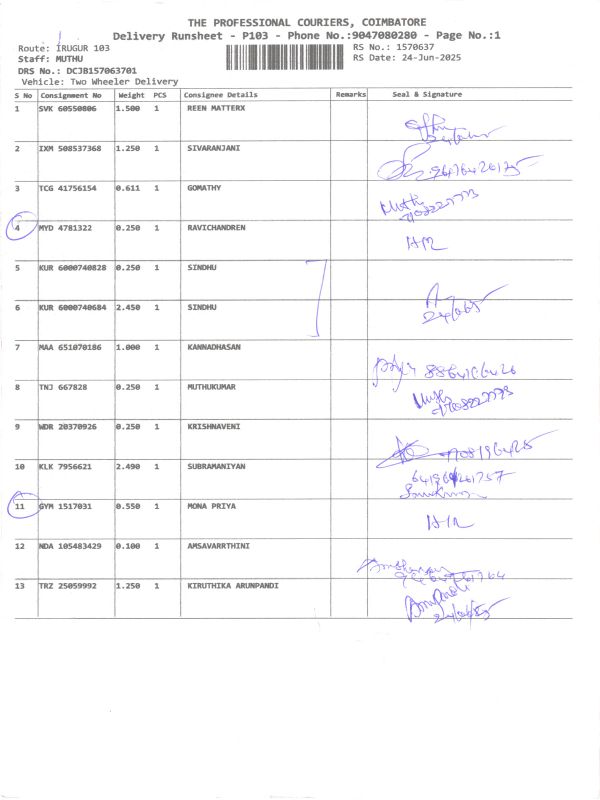 THE PROFESSIONAL COURIERS, COIMBATORE
Delivery Runsheet - P103 - Phone No.:9047080280 - Page No.:1
Route: IRUGUR 103 RS No.: 1570637
Staff: MUTHU RS Date: 24-Jun-2025
DRS No.: DCJB157063701
Vehicle: Two Wheeler Delivery
S No Consignment No Weight PCS Consignee Details Remarks Seal & Signature
1 SVK 60550806 1.500 1 REEN MATTERX
2 IXM 508537368 1.250 1 SIVARANJANI
3 TCG 41756154 0.611 1 GOMATHY
4 MYD 4781322 0.250 1 RAVICHANDREN
5 KUR 6000740828 0.250 1 SINDHU
6 KUR 6000740684 2.450 1 SINDHU
7 MAA 651070186 1.000 1 KANNADHASAN
8 TNJ 667828 0.250 1 MUTHUKUMAR
9 WDR 20370926 0.250 1 KRISHNAVENI
10 KLK 7956621 2.490 1 SUBRAMANIYAN
11 GYM 1517031 0.550 1 MONA PRIYA
12 NDA 105483429 0.100 1 AMSAVARRTHINI
13 TRZ 25059992 1.250 1 KIRUTHIKA ARUNPANDI